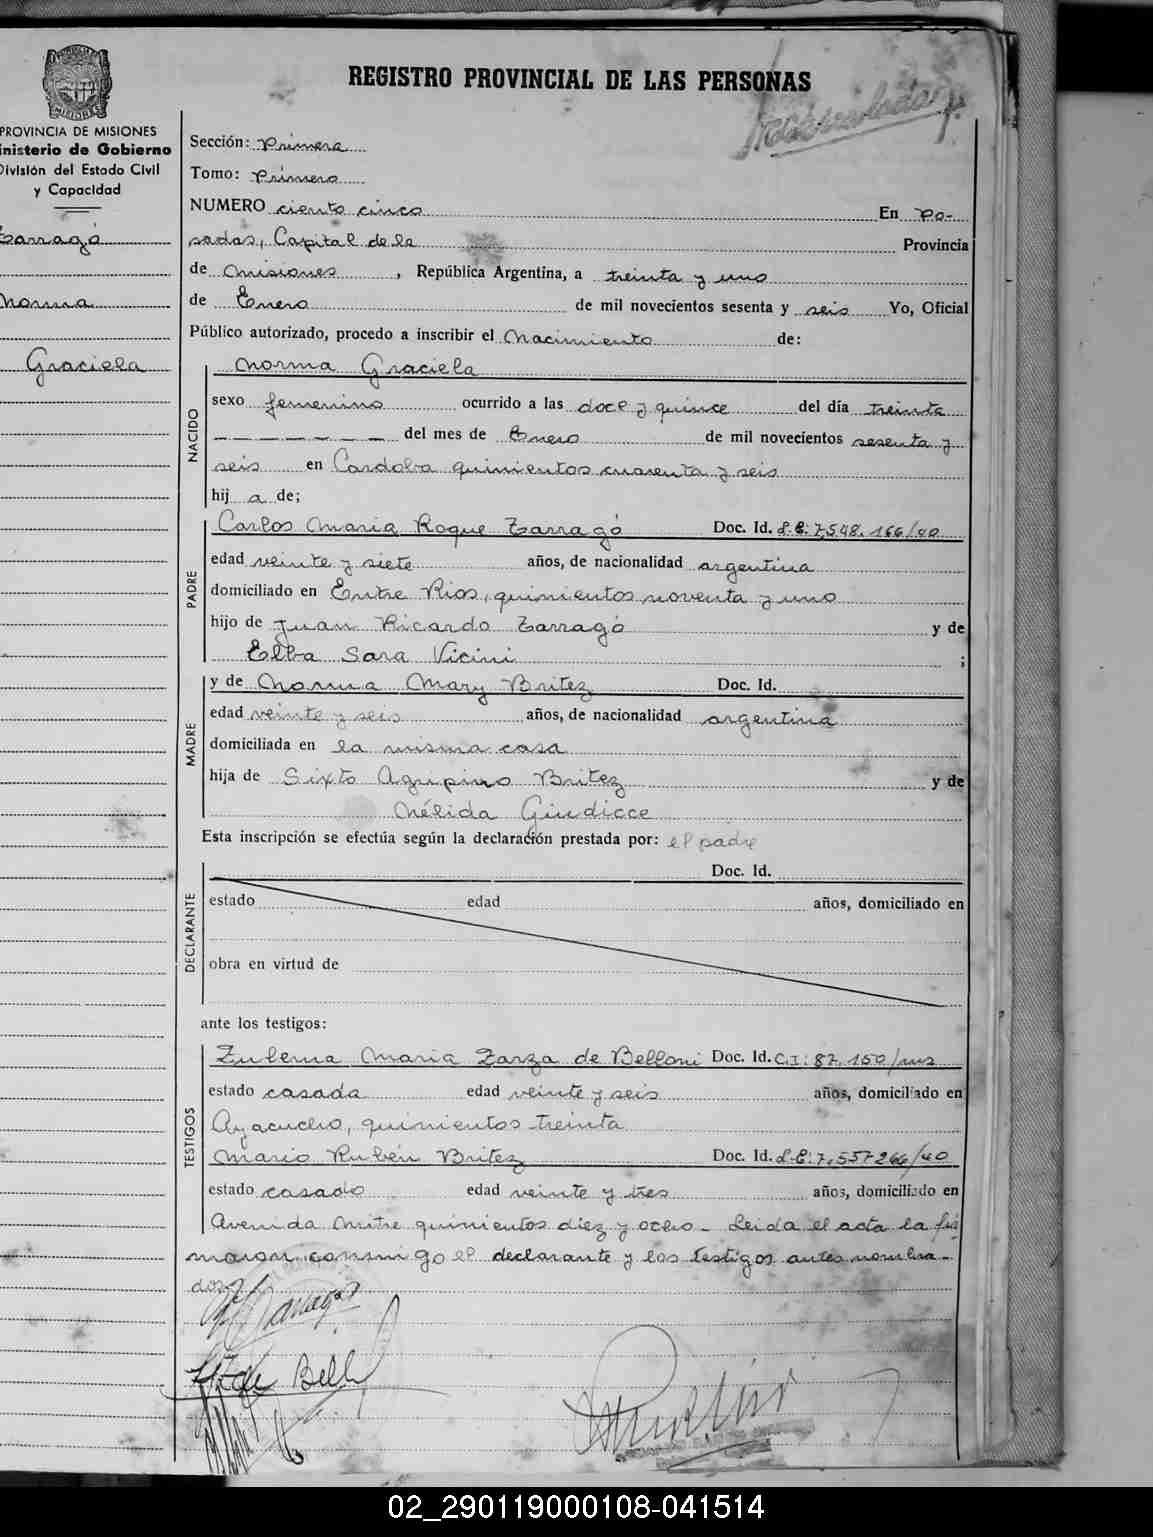 REGISTRO PROVINCIAL DE LAS PERSONAS
PROVINCIA DE MISIONES
inisterio de Gobierno
División del Estado Civil
y Capacidad
Tarragó
Norma
Graciela
Sección: Primera
Tomo: Primero
NUMERO ciento cinco En Po-
sadas, Capital de la Provincia
de Misiones, República Argentina, a treinta y uno
de Enero de mil novecientos sesenta y seis Yo, Oficial
Público autorizado, procedo a inscribir el Nacimiento de:
NACIDO
Norma Graciela
sexo femenino ocurrido a las doce y quince del día treinta
— — — — — — — del mes de Enero de mil novecientos sesenta y
seis en Cordoba quinientos cuarenta y seis
hij a de;
PADRE
Carlos Maria Roque Tarragó Doc. Id. L.E: 7.548.166/40
edad veinte y siete años, de nacionalidad argentina
domiciliado en Entre Rios, quinientos noventa y uno
hijo de Juan Ricardo Tarragó y de
Elba Sara Vicini ;
MADRE
y de Norma Mary Britez Doc. Id.
edad veinte y seis años, de nacionalidad argentina
domiciliada en la misma casa
hija de Sixto Agripino Britez y de
Nélida Giudicce
Esta inscripción se efectúa según la declaración prestada por: el padre
DECLARANTE
Doc. Id.
estado edad años, domiciliado en
obra en virtud de
ante los testigos:
TESTIGOS
Zulema Maria Zarza de Belloni Doc. Id. C.I: 87.150/mns
estado casada edad veinte y seis años, domiciliado en
Ayacucho, quinientos treinta
Mario Rubén Britez Doc. Id. L.E: 7.557266/40
estado casado edad veinte y tres años, domiciliado en
Avenida Mitre quinientos diez y ocho - Leida el acta la fir
maron conmigo el declarante y los testigos antes nombra-
dos
02_290119000108-041514